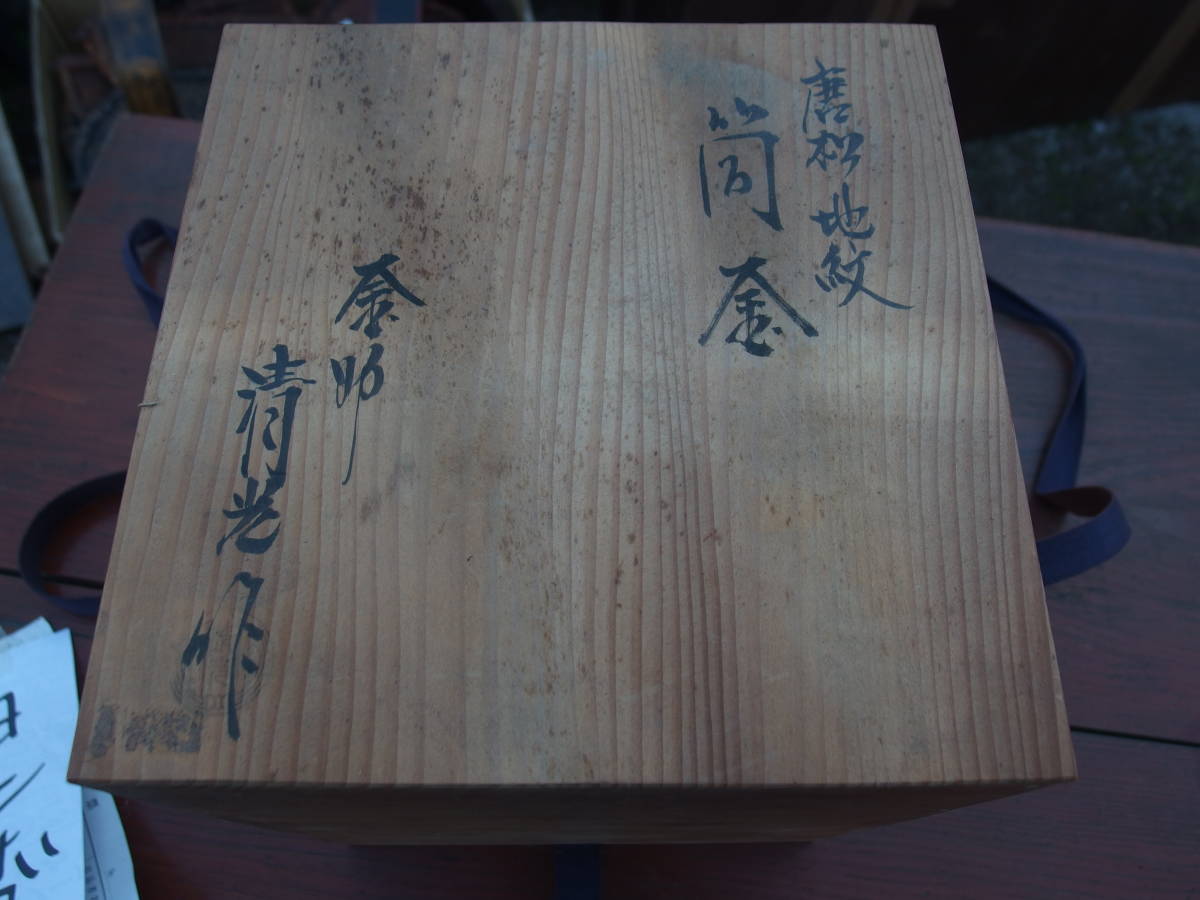 唐松地紋
筒釜
釜師
清光作